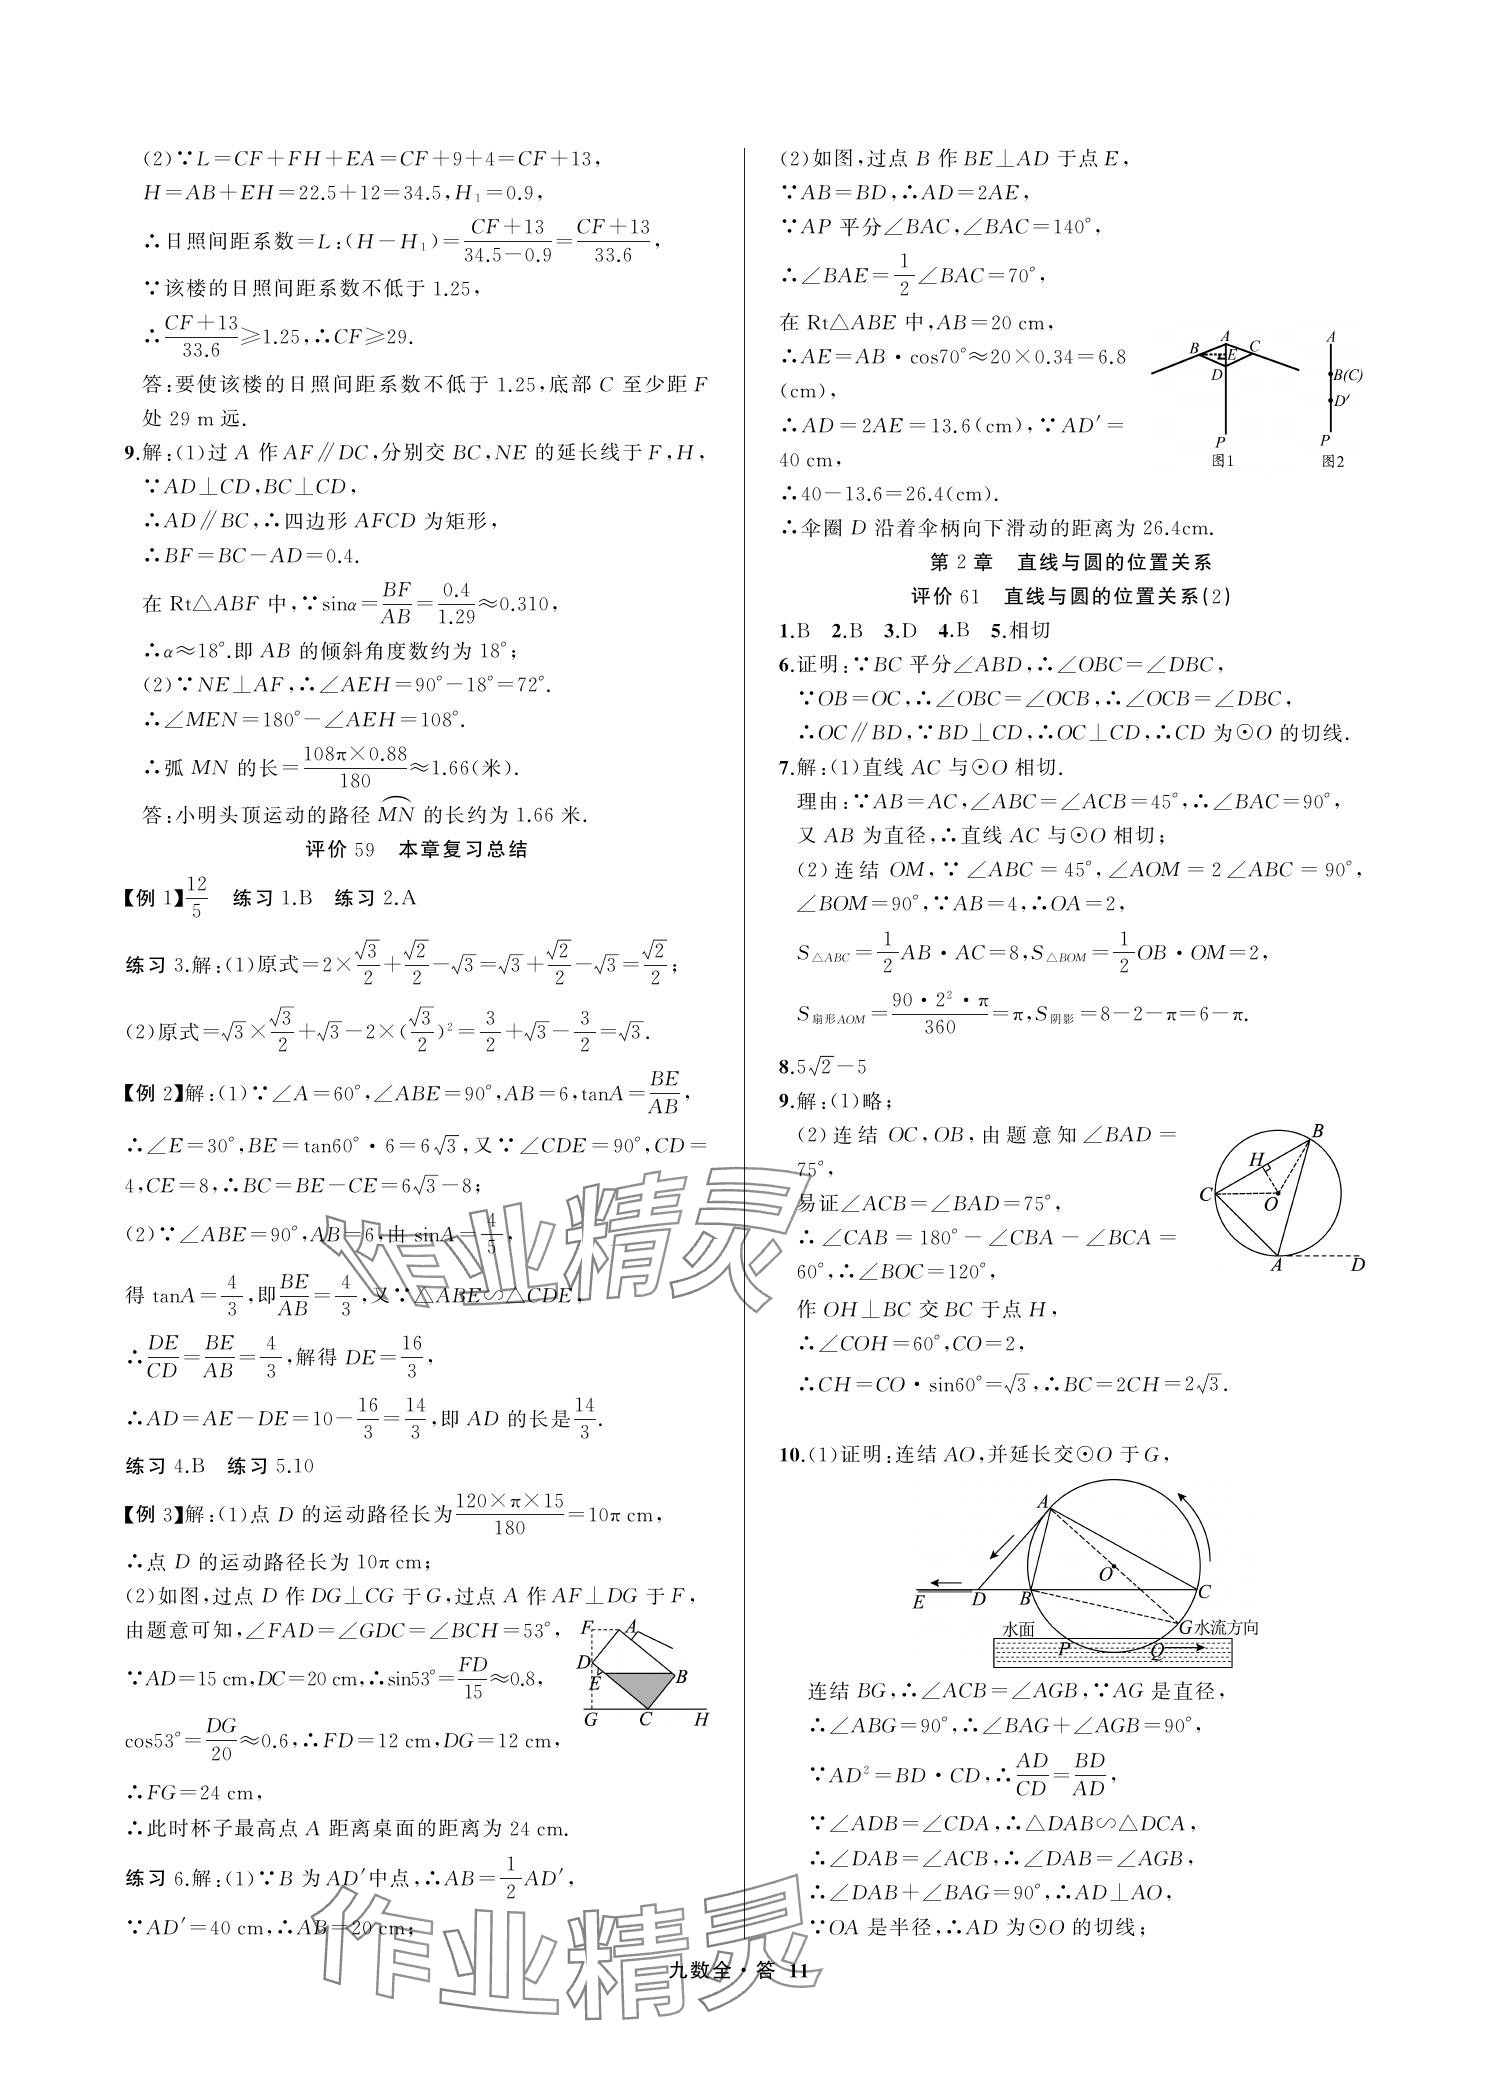 (2)∵L=CF+FH+EA=CF+9+4=CF+13,
H=AB+EH=22.5+12=34.5,H₁=0.9,
∴日照间距系数=L:(H-H₁)=\frac{CF+13}{34.5-0.9}=\frac{CF+13}{33.6},
∵该楼的日照间距系数不低于1.25,
∴\frac{CF+13}{33.6}⩾1.25,∴CF⩾29.
答:要使该楼的日照间距系数不低于1.25,底部C至少距F
处29 m远.
9.解:(1)过A作AF∥DC,分别交BC,NE的延长线于F,H,
∵AD⊥CD,BC⊥CD,
∴AD∥BC,∴四边形AFCD为矩形,
∴BF=BC-AD=0.4.
在Rt△ABF中,∵sinα=\frac{BF}{AB}=\frac{0.4}{1.29}≈0.310,
∴α≈18°.即AB的倾斜角度数约为18°;
(2)∵NE⊥AF,∴∠AEH=90°-18°=72°.
∴∠MEN=180°-∠AEH=108°.
∴弧MN的长=\frac{108π×0.88}{180}≈1.66(米).
答:小明头顶运动的路径\overset{⌒}{MN}的长约为1.66米.
评价59 本章复习总结
【例1】\frac{12}{5} 练习1.B 练习2.A
练习3.解:(1)原式=2×\frac{√3}{2}+\frac{√2}{2}-√3=√3+\frac{√2}{2}-√3=\frac{√2}{2};
(2)原式=√3×\frac{√3}{2}+√3-2×(\frac{√3}{2})²=\frac{3}{2}+√3-\frac{3}{2}=√3.
【例2】解:(1)∵∠A=60°,∠ABE=90°,AB=6,tanA=\frac{BE}{AB},
∴∠E=30°,BE=tan60°·6=6√3,又∵∠CDE=90°,CD=
4,CE=8,∴BC=BE-CE=6√3-8;
(2)∵∠ABE=90°,AB=6,由sinA=\frac{4}{5},
得tanA=\frac{4}{3},即\frac{BE}{AB}=\frac{4}{3},又∵△ABE∽△CDE,
∴\frac{DE}{CD}=\frac{BE}{AB}=\frac{4}{3},解得DE=\frac{16}{3},
∴AD=AE-DE=10-\frac{16}{3}=\frac{14}{3},即AD的长是\frac{14}{3}.
练习4.B 练习5.10
【例3】解:(1)点D的运动路径长为\frac{120×π×15}{180}=10π cm,
∴点D的运动路径长为10π cm;
(2)如图,过点D作DG⊥CG于G,过点A作AF⊥DG于F,
由题意可知,∠FAD=∠GDC=∠BCH=53°,
∵AD=15 cm,DC=20 cm,∴sin53°=\frac{FD}{15}≈0.8,
cos53°=\frac{DG}{20}≈0.6,∴FD=12 cm,DG=12 cm,
F A
D
E B
G C H
∴FG=24 cm,
∴此时杯子最高点A距离桌面的距离为24 cm.
练习6.解:(1)∵B为AD′中点,∴AB=\frac{1}{2}AD′,
∵AD′=40 cm,∴AB=20 cm;
(2)如图,过点B作BE⊥AD于点E,
∵AB=BD,∴AD=2AE,
∵AP平分∠BAC,∠BAC=140°,
∴∠BAE=\frac{1}{2}∠BAC=70°,
在Rt△ABE中,AB=20 cm,
∴AE=AB·cos70°≈20×0.34=6.8
(cm),
∴AD=2AE=13.6(cm),∵AD′=
40 cm,
A A
B E C
D B(C)
D′
P P
图1 图2
∴40-13.6=26.4(cm).
∴伞圈D沿着伞柄向下滑动的距离为26.4cm.
第2章 直线与圆的位置关系
评价61 直线与圆的位置关系(2)
1.B 2.B 3.D 4.B 5.相切
6.证明:∵BC平分∠ABD,∴∠OBC=∠DBC,
∵OB=OC,∴∠OBC=∠OCB,∴∠OCB=∠DBC,
∴OC∥BD,∵BD⊥CD,∴OC⊥CD,∴CD为⊙O的切线.
7.解:(1)直线AC与⊙O相切.
理由:∵AB=AC,∠ABC=∠ACB=45°,∴∠BAC=90°,
又AB为直径,∴直线AC与⊙O相切;
(2)连结OM,∵∠ABC=45°,∠AOM=2∠ABC=90°,
∠BOM=90°,∵AB=4,∴OA=2,
S△ABC=\frac{1}{2}AB·AC=8,S△BOM=\frac{1}{2}OB·OM=2,
S扇形AOM=\frac{90·2²·π}{360}=π,S阴影=8-2-π=6-π.
8.5√2-5
9.解:(1)略;
(2)连结OC,OB,由题意知∠BAD=
75°,
易证∠ACB=∠BAD=75°,
∴∠CAB=180°-∠CBA-∠BCA=
60°,∴∠BOC=120°,
B
H
C O
A D
作OH⊥BC交BC于点H,
∴∠COH=60°,CO=2,
∴CH=CO·sin60°=√3,∴BC=2CH=2√3.
10.(1)证明:连结AO,并延长交⊙O于G,
A
O
E D B C
水面 G水流方向
P Q
连结BG,∴∠ACB=∠AGB,∵AG是直径,
∴∠ABG=90°,∴∠BAG+∠AGB=90°,
∵AD²=BD·CD,∴\frac{AD}{CD}=\frac{BD}{AD},
∵∠ADB=∠CDA,∴△DAB∽△DCA,
∴∠DAB=∠ACB,∴∠DAB=∠AGB,
∴∠DAB+∠BAG=90°,∴AD⊥AO,
∵OA是半径,∴AD为⊙O的切线;
九数全·答 11
作业精灵
作业精灵